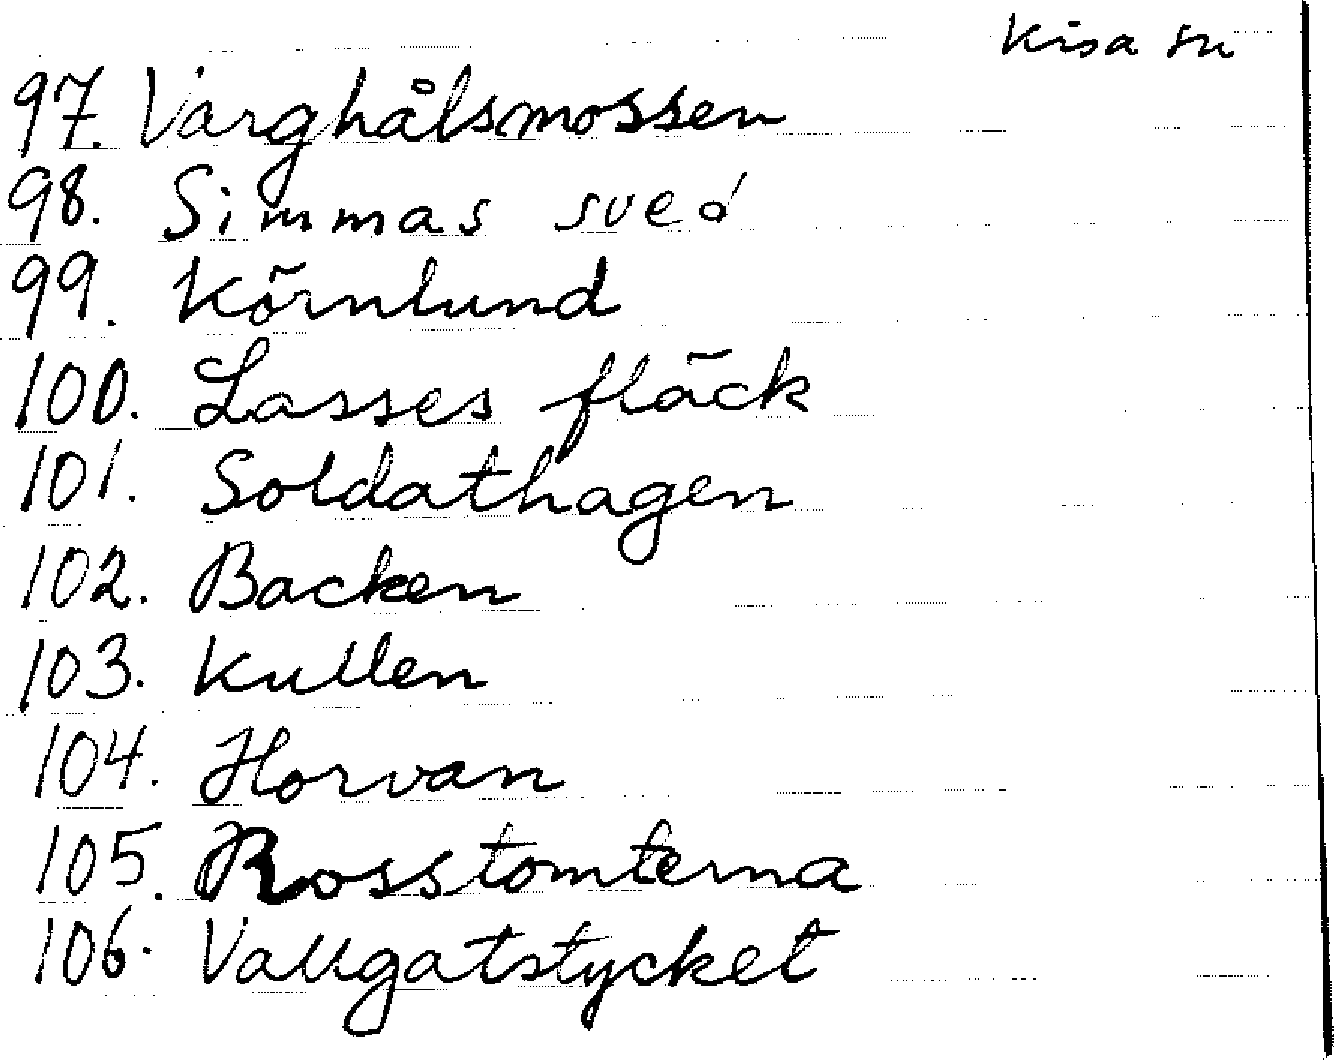 Kisa sn
97. Varghålsmossen
98. Simmas sved
99. Körnlund
100. Lasses fläck
101. Soldathagen
102. Backen
103. Kullen
104. Horvan
105. Rosstomterna
106. Vallgatstycket